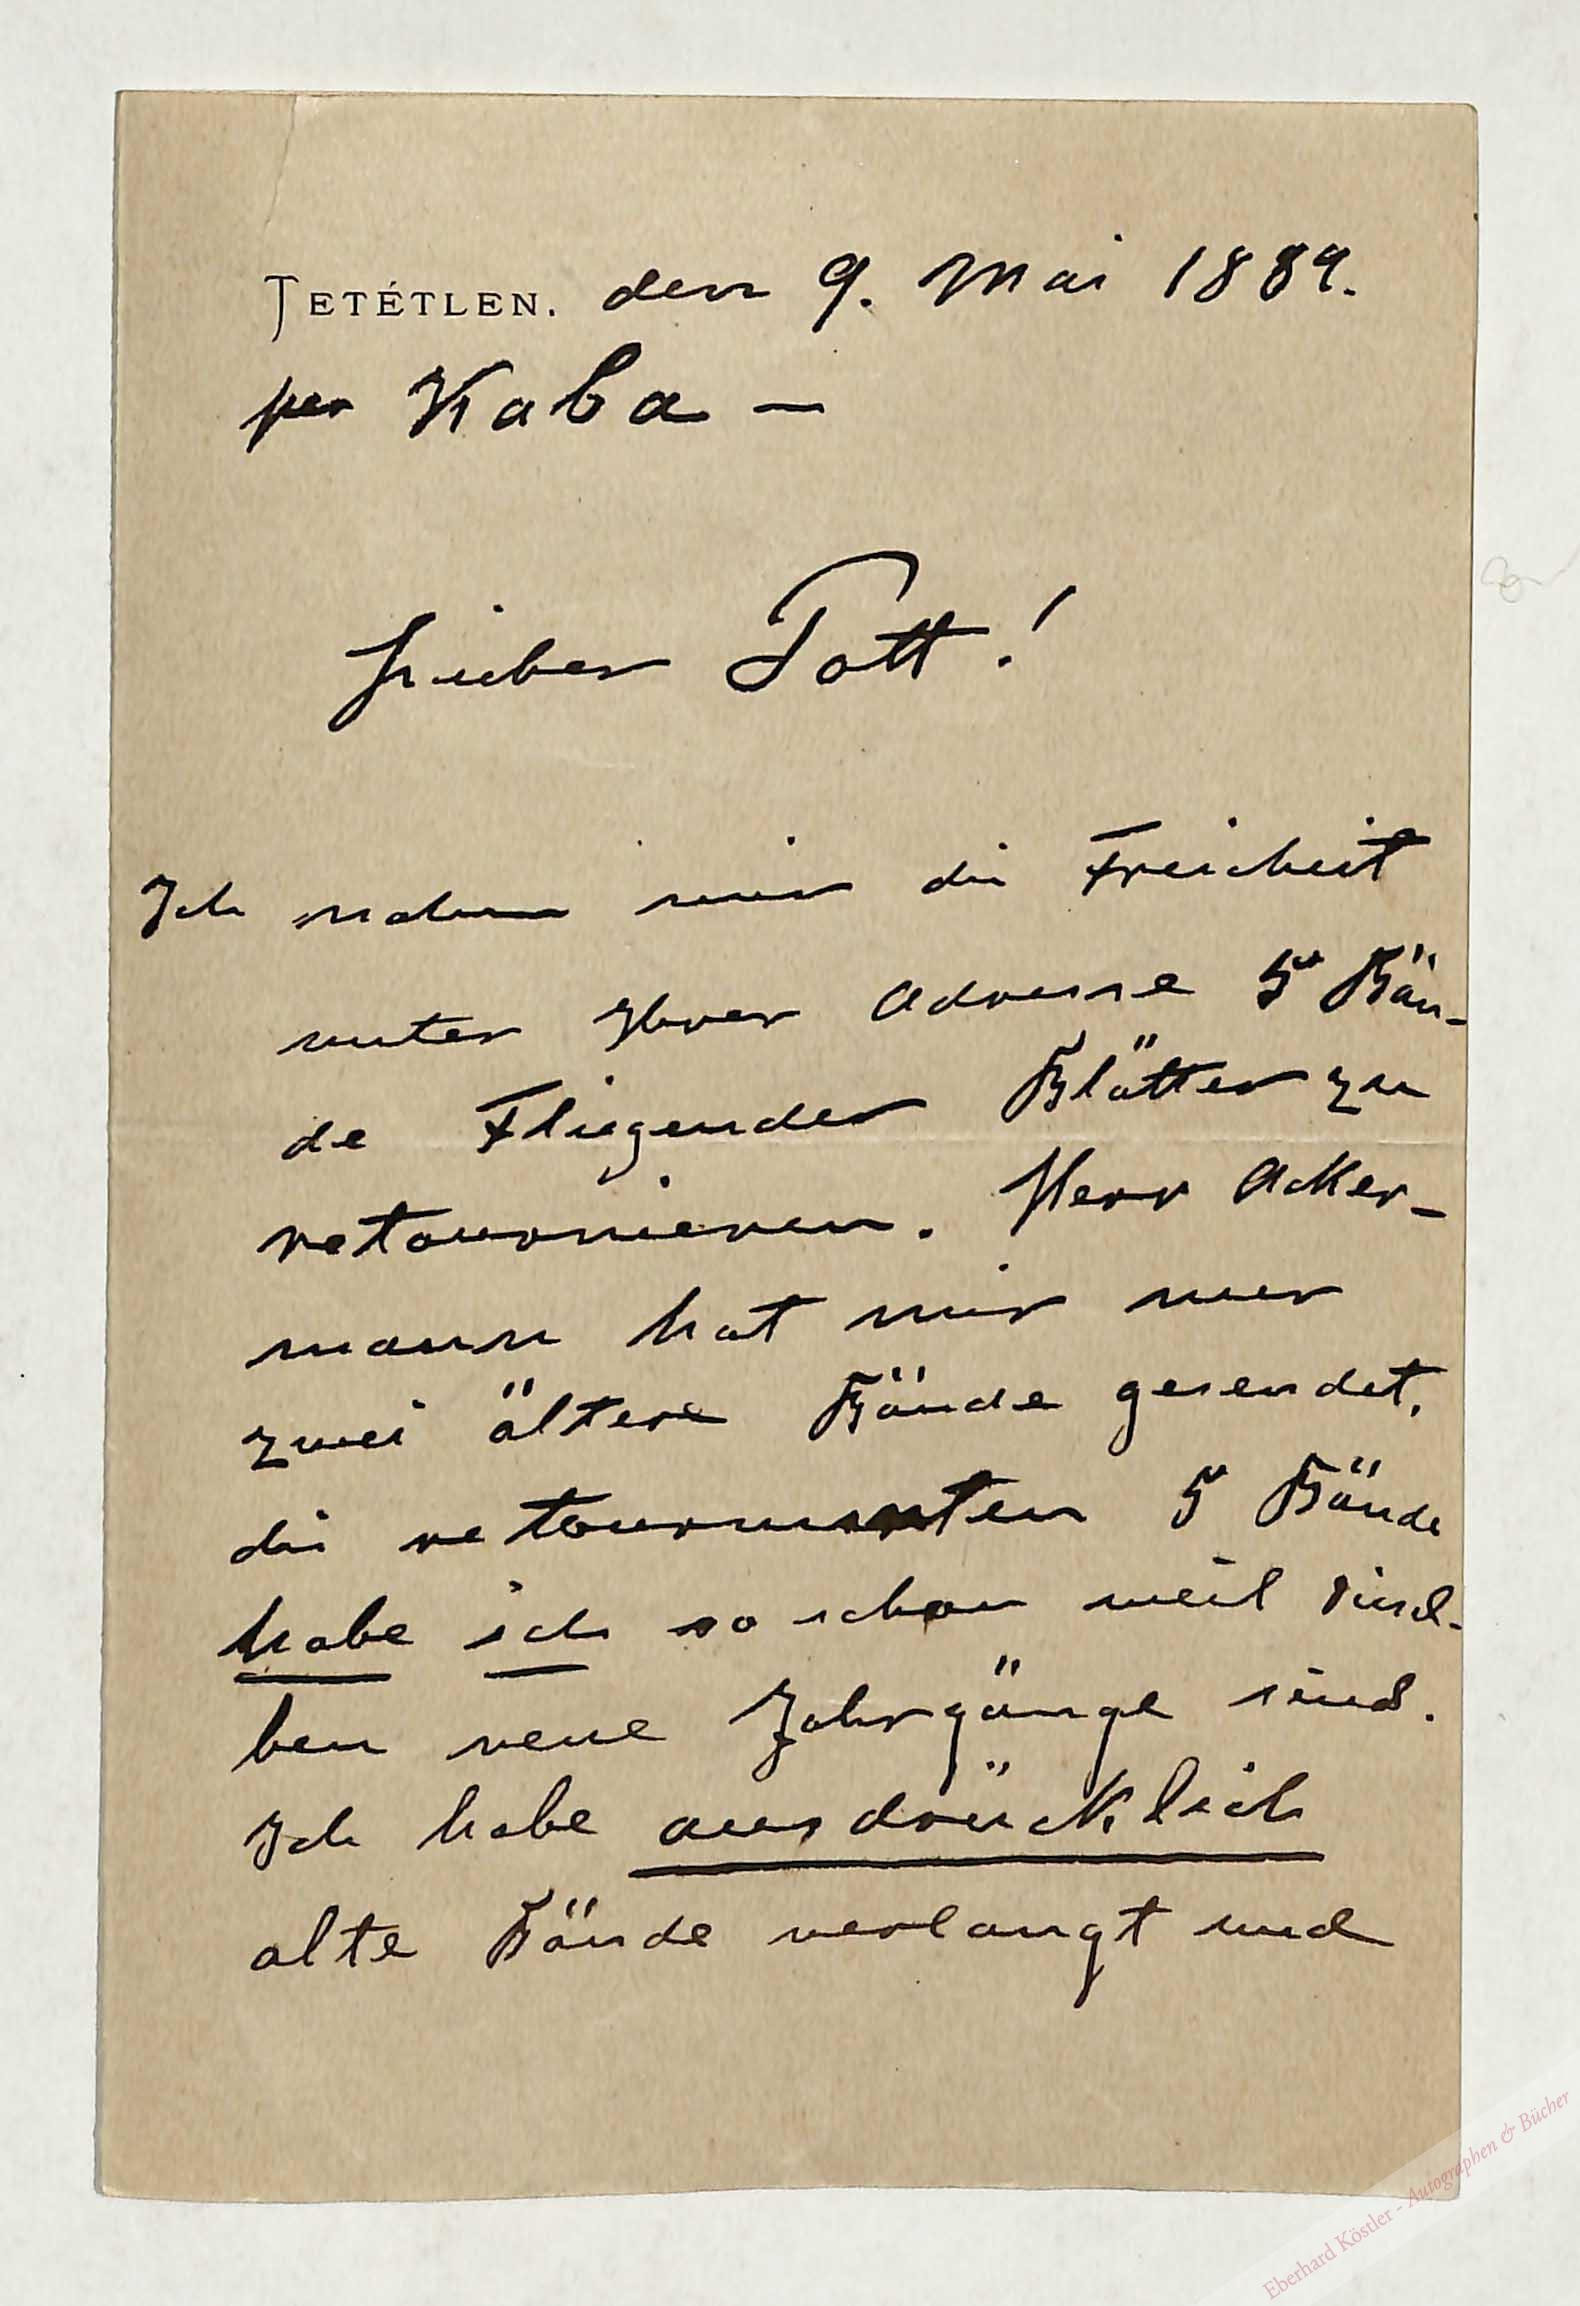 TETÉTLEN. den 9. Mai 1889.
per Kaba —
Lieber Pott!
Ich nehme mir die Freiheit
unter Ihrer Adresse 5 Bän-
de Fliegender Blätter zu
retournieren. Herr Acker-
mann hat mir nur
zwei ältere Bände gesendet,
die retournirten 5 Bände
habe ich so schon weil diesel-
ben neue Jahrgänge sind.
Ich habe ausdrücklich
alte Bände verlangt und
Eberhard Köstler - Autographen & Bücher